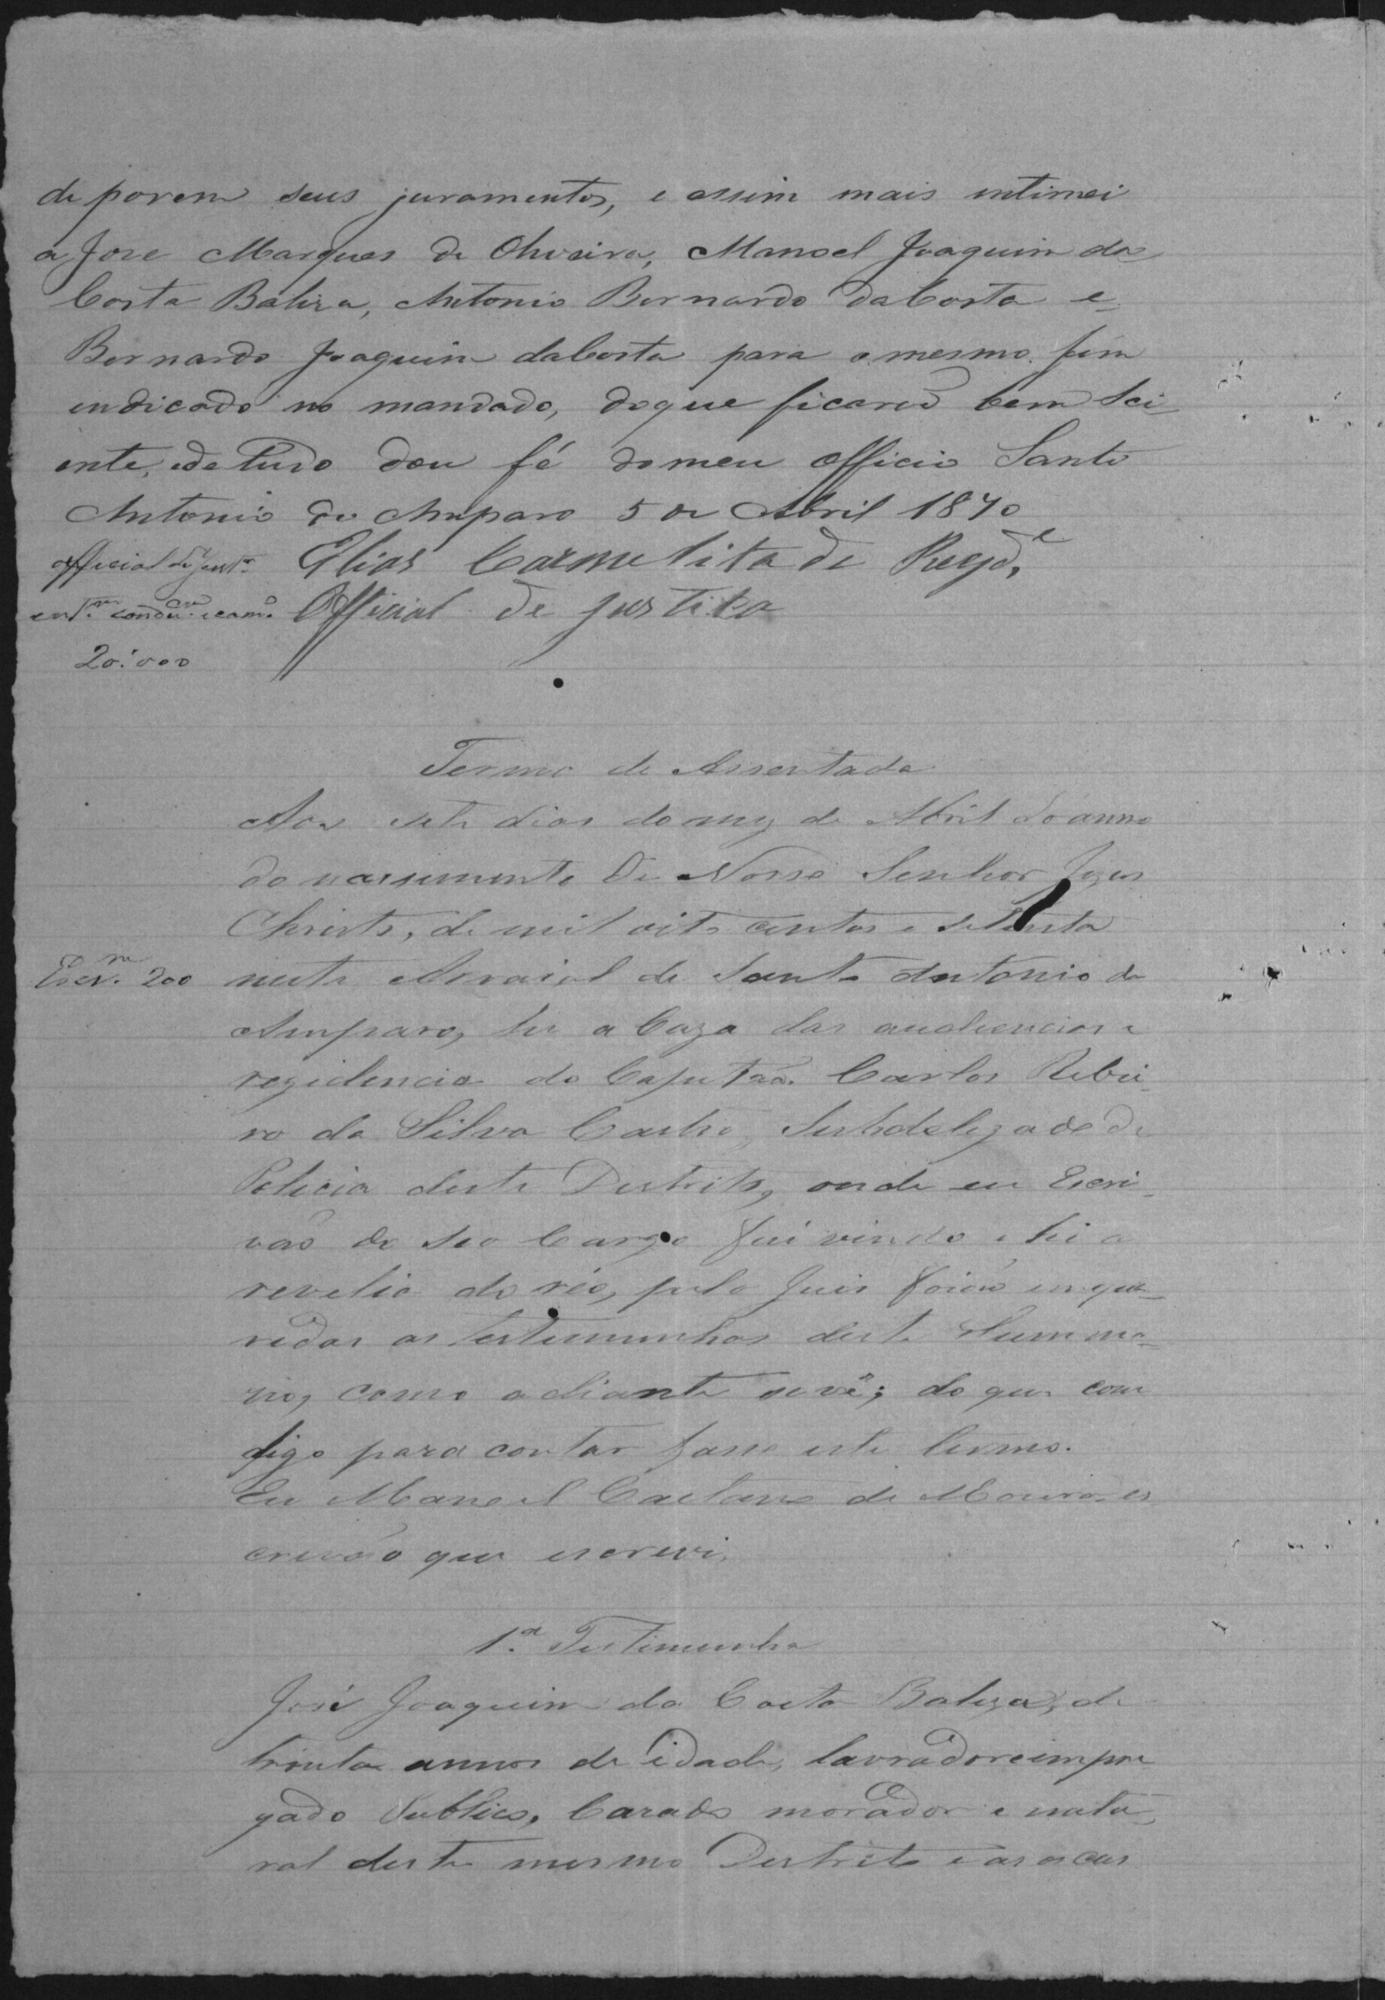 de porem seus juramentos, e assim mais intimei
a Jose Marques de Oliveira, Manoel Joaquim da
Costa Baliza, Antonio Bernardo da Costa e
Bernardo Joaquim daCosta para o mesmo fim
indicado no mandado, doque ficarão bem Sci
ente, edeTudo dou fé domeu officio Santo
Antonio do Amparo 5 de Abril 1870
official de just.ª Elias Carmelita de
Official de justica
20:000
Termo de Assentada
Aos sete dias do mez de Abril do anno
do nascimento de Nosso Senhor Jezus
Christo, de mil oito centos e setenta
Escr.m 200 neste Arraial de Santo Antonio do
Amparo, em a Caza das audiencias e
rezidencia do Capitão Carlos Ribei
ro da Silva Castro, Subdelegado de
Policia deste Destrito, onde eu Escri
vão de seo Cargo fui vindo e hi a
revelia do réo, pelo Juis forão inqui
ridas as testemunhas deste Summa
rio, como adiante se vê; do que com
digo para contar fasso este termo.
Eu Manoel Caetano de Moura es
crivão que escrevi.
1.ª Testimunha
José Joaquim da Costa Baliza, de
trinta annos de idade, lavrador e impre
gado Publico, Cazado morador e natu
ral deste mesmo Destrito e aos